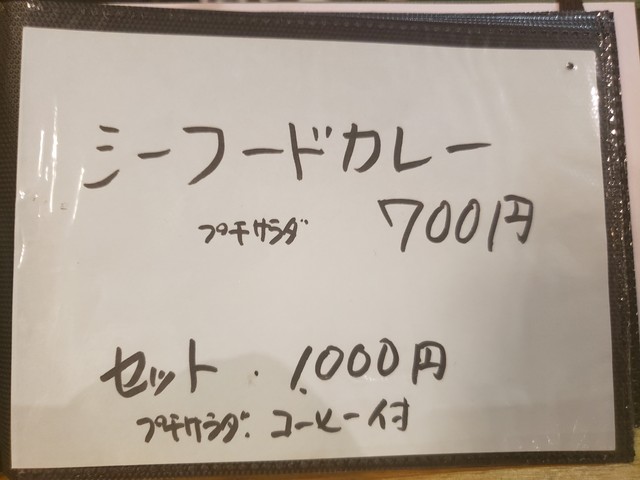 シーフードカレー
プチサラダ 700円
セット・1,000円
プチサラダ、コーヒー付